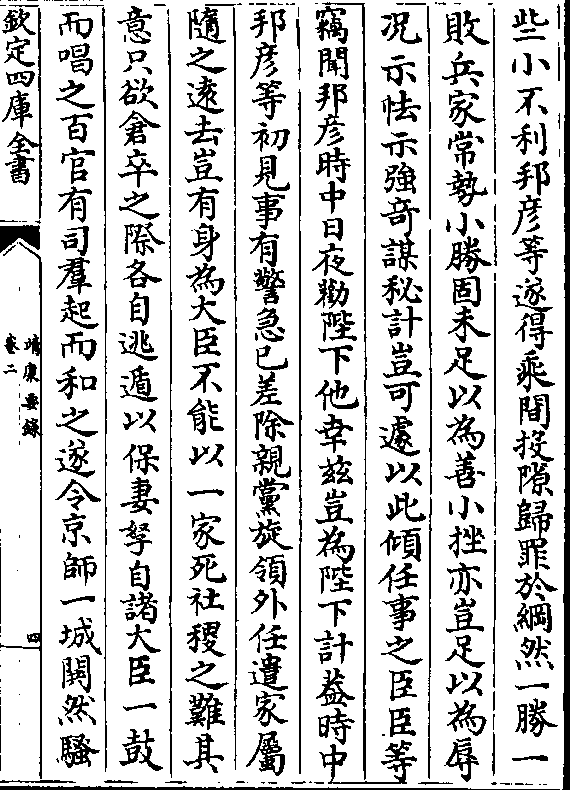 些小不利邦彦等遂得乘間投隙歸罪於綱然一勝一
敗兵家常勢小勝固未足以為善小挫亦豈足以為辱
况示怯示強竒謀秘計豈可遽以此傾任事之臣臣等
竊聞邦彦時中日夜勸陛下他幸兹豈為陛下計葢時中
邦彦等初見事有警急已差除親黨旋領外任遣家屬
隨之逺去豈有身為大臣不能以一家死社稷之難其
意只欲倉卒之際各自逃遁以保妻孥自諸大臣一鼓
而唱之百官有司羣起而和之遂令京師一城閧然騷
欽定四庫全書
靖康要録
卷二
四